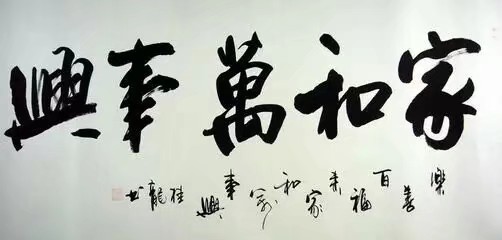 家和萬事興
樂善百福来家和万事興 桂龍书